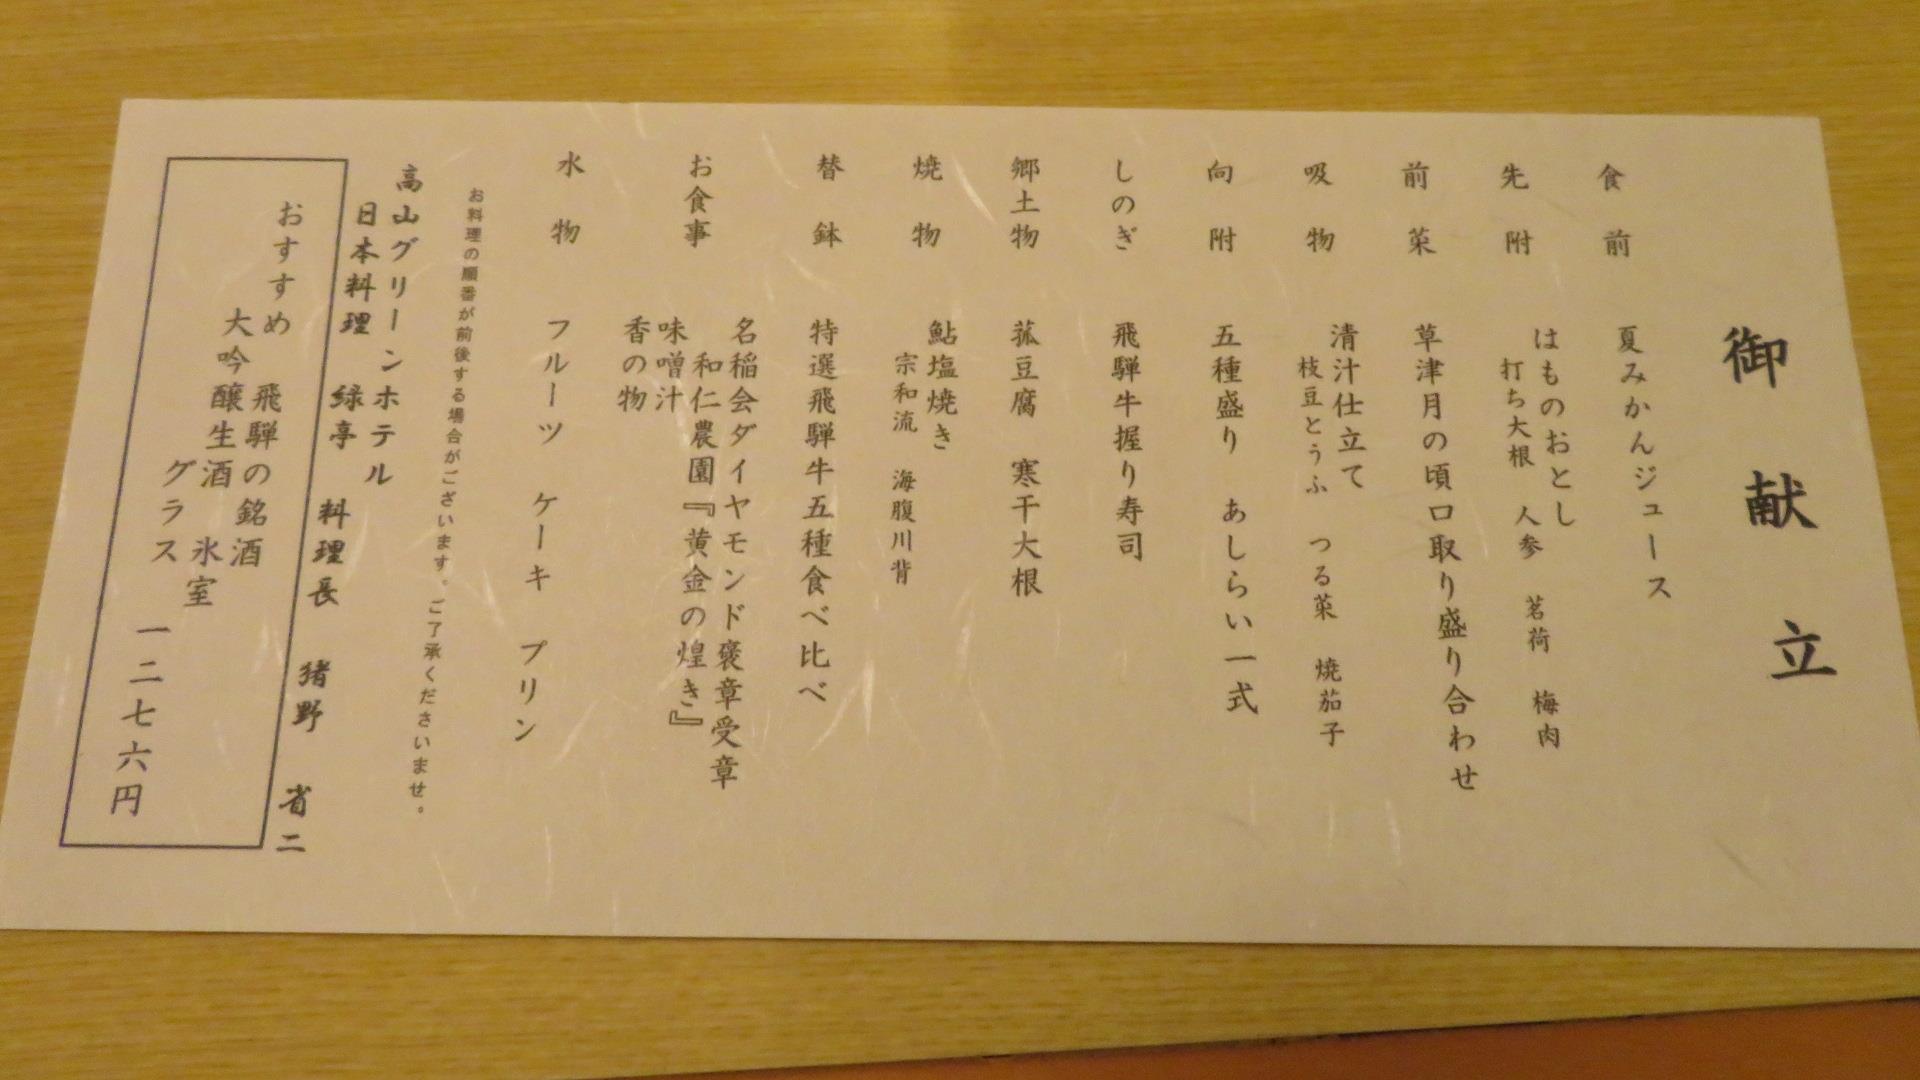 御献立
食前 夏みかんジュース
先附 はものおとし
打ち大根 人参 茗荷 梅肉
前菜 草津月の頃口取り盛り合わせ
吸物 清汁仕立て
枝豆とうふ つる菜 焼茄子
向附 五種盛り あしらい一式
しのぎ 飛騨牛握り寿司
郷土物 菰豆腐 寒干大根
焼物 鮎塩焼き
宗和流 海腹川背
替鉢 特選飛騨牛五種食べ比べ
お食事 名稲会ダイヤモンド褒章受章
和仁農園『黄金の煌き』
味噌汁
香の物
水物 フルーツ ケーキ プリン
お料理の順番が前後する場合がございます。ご了承くださいませ。
高山グリーンホテル
日本料理 緑亭 料理長 猪野 省二
おすすめ 飛騨の銘酒
大吟醸生酒 氷室
グラス 一二七六円